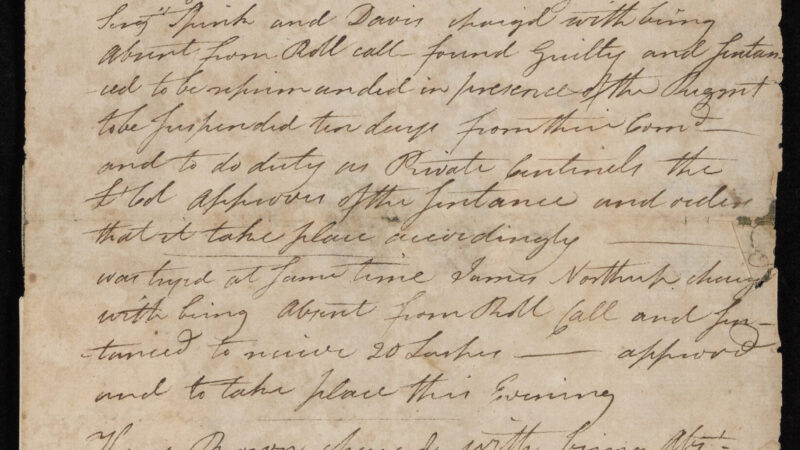 Serjts Spink and Davis chargd with being
Absent from Roll call found Guilty and Sentan
ced to be reprimanded in presence of the Regmt
to be Suspended ten days from thier Comd
and to do duty as Private Centinels the
Lt Col Approves of the Sentance and orders
that it take place accordingly
was tryd at Same time James Northup chargd
with being Absent from Roll Call and Sen-
tanced to receive 20 Lashes — approvd
and to take place this Evening
Brown chargd with being Abst